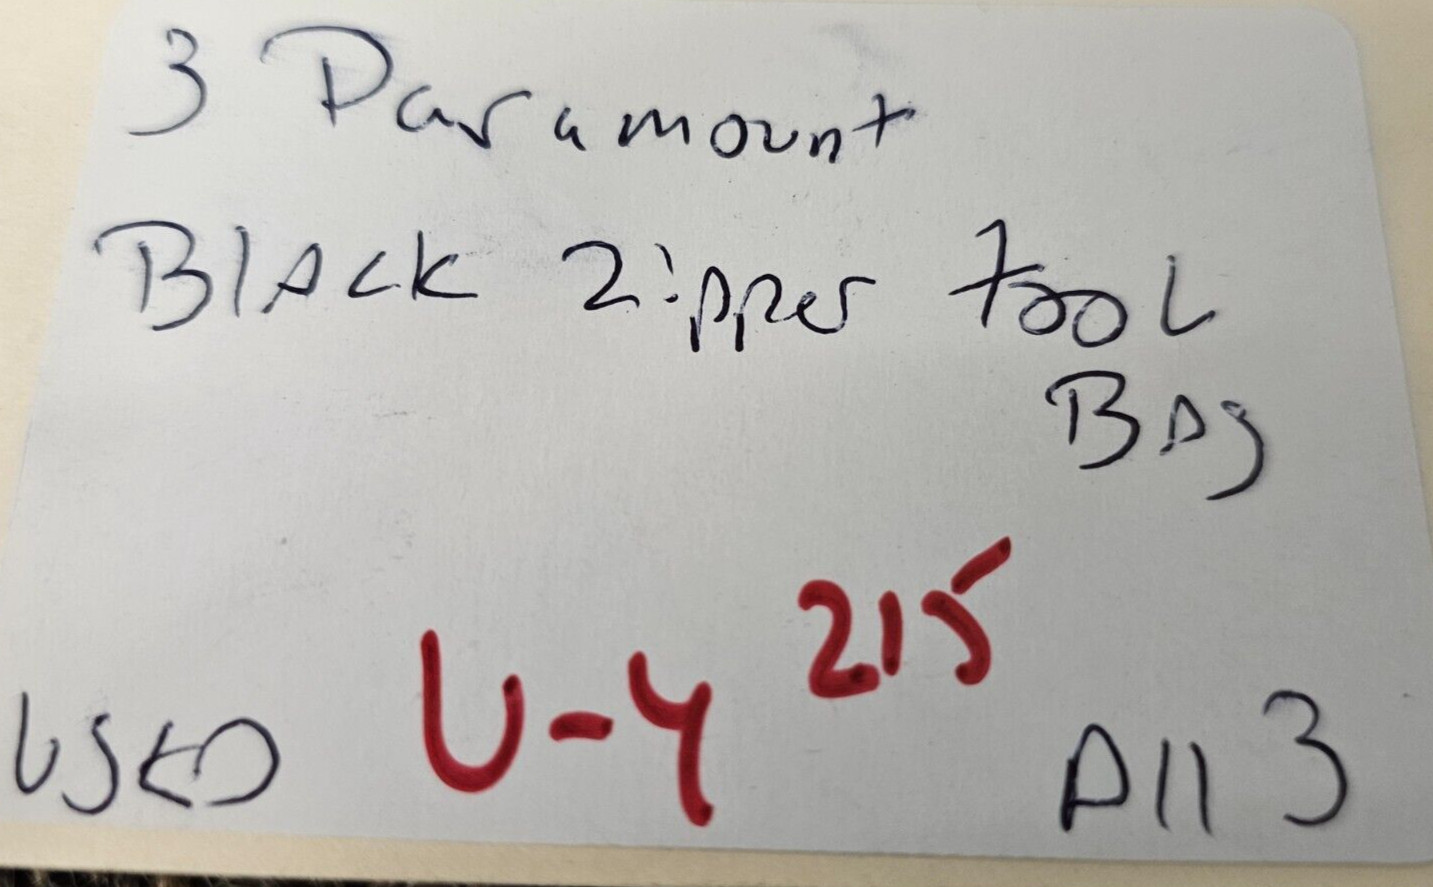 3 Paramount
Black Zipper tool
Bag
U-4 215
USED
All 3